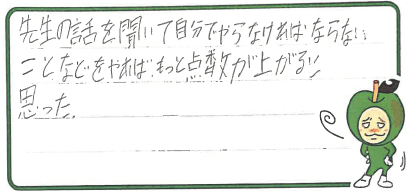 先生の話を聞いて自分でやらなければならない
ことなどをやれば、もっと点数が上がると
思った。